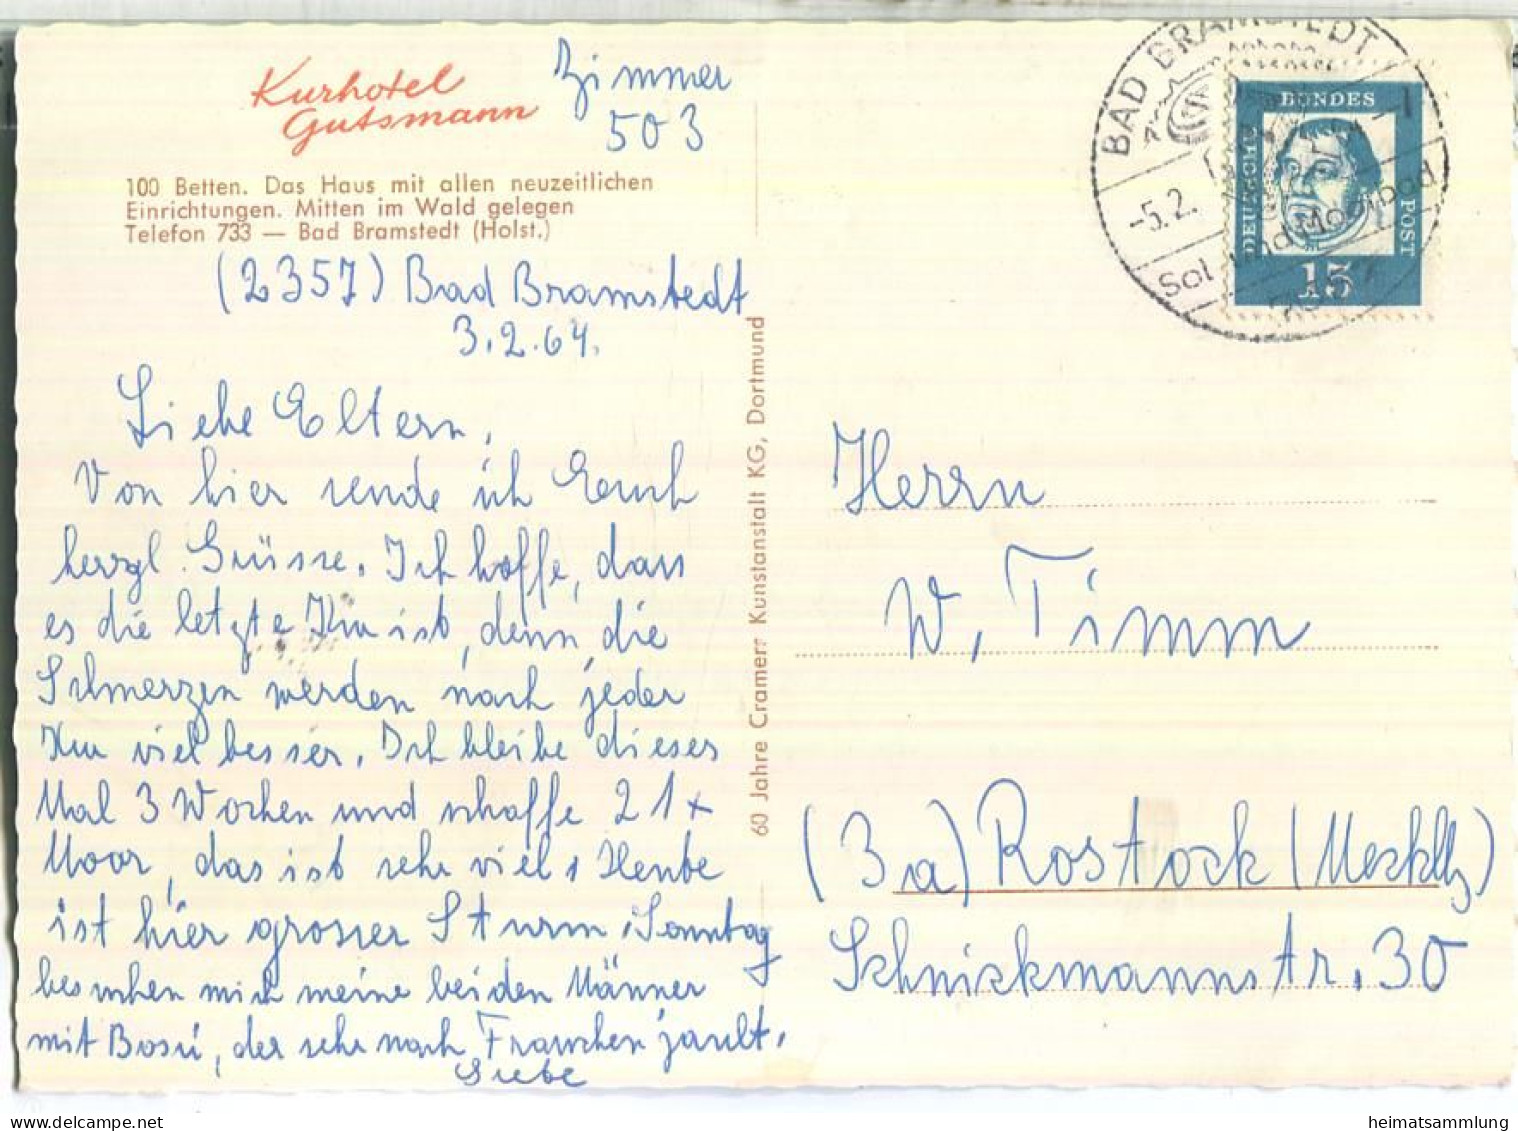 Kurhotel
Gutsmann
Zimmer
503
100 Betten. Das Haus mit allen neuzeitlichen
Einrichtungen. Mitten im Wald gelegen
Telefon 733 — Bad Bramstedt (Holst.)
(2357) Bad Bramstedt
3.2.64.
Liebe Eltern,
Von hier sende ich Euch
herzl. Grüsse. Ich hoffe, dass
es die letzte Kur ist, denn die
Schmerzen werden nach jeder
Kur viel besser. Ich bleibe dieses
Mal 3 Wochen und schaffe 21 x
Moor, das ist sehr viel. Heute
ist hier grosser Sturm. Sonntag
besuchen mich meine beiden Männer
mit Bosü, der sehr nach Frauchen jault.
60 Jahre Cramers Kunstanstalt KG, Dortmund
BAD BRAMSTEDT
-5.2.
Sol und Moorbad
DEUTSCHE
BUNDES
POST
15
Herrn
W. Timm
(3a) Rostock (Mecklbg)
Schnickmannstr. 30
© see delcampe.net
heimatsammlung